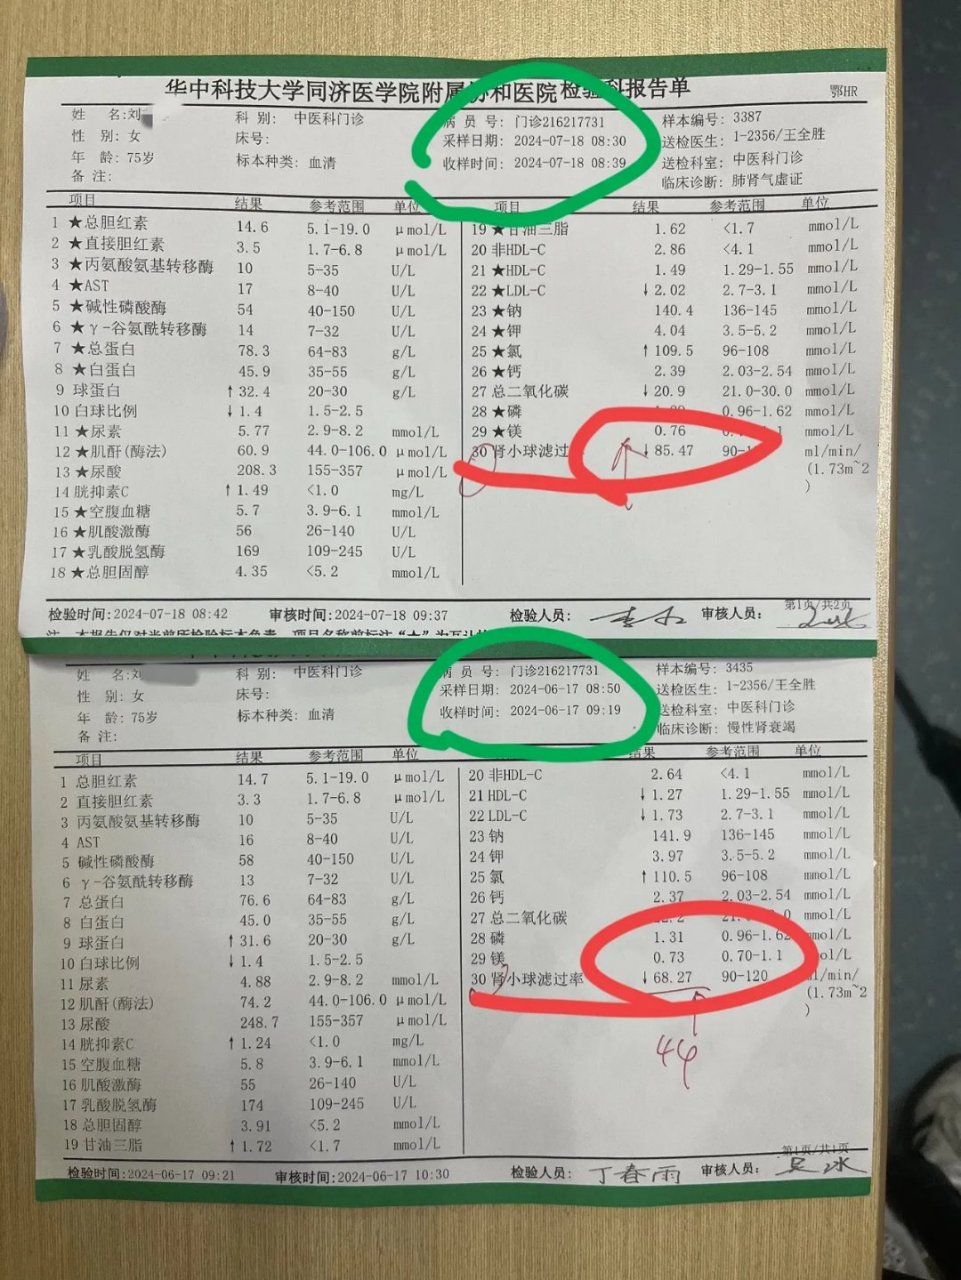 华中科技大学同济医学院附属协和医院检验科报告单 鄂HR
姓 名:刘 科 别: 中医科门诊 病 员 号: 门诊216217731 样本编号: 3387
性 别: 女 床号: 采样日期: 2024-07-18 08:30 送检医生: 1-2356/王全胜
年 龄: 75岁 标本种类: 血清 收样时间: 2024-07-18 08:39 送检科室: 中医科门诊
备 注: 临床诊断: 肺肾气虚证
项目 结果 参考范围 单位 项目 结果 参考范围 单位
1 ★总胆红素 14.6 5.1-19.0 μmol/L 19 ★甘油三脂 1.62 <1.7 mmol/L
2 ★直接胆红素 3.5 1.7-6.8 μmol/L 20 非HDL-C 2.86 <4.1 mmol/L
3 ★丙氨酸氨基转移酶 10 5-35 U/L 21 ★HDL-C 1.49 1.29-1.55 mmol/L
4 ★AST 17 8-40 U/L 22 ★LDL-C ↓ 2.02 2.7-3.1 mmol/L
5 ★碱性磷酸酶 54 40-150 U/L 23 ★钠 140.4 136-145 mmol/L
6 ★γ-谷氨酰转移酶 14 7-32 U/L 24 ★钾 4.04 3.5-5.2 mmol/L
7 ★总蛋白 78.3 64-83 g/L 25 ★氯 ↑ 109.5 96-108 mmol/L
8 ★白蛋白 45.9 35-55 g/L 26 ★钙 2.39 2.03-2.54 mmol/L
9 球蛋白 ↑ 32.4 20-30 g/L 27 总二氧化碳 ↓ 20.9 21.0-30.0 mmol/L
10 白球比例 ↓ 1.4 1.5-2.5 28 ★磷 0.96-1.62 mmol/L
11 ★尿素 5.77 2.9-8.2 mmol/L 29 ★镁 0.76 mmol/L
12 ★肌酐(酶法) 60.9 44.0-106.0 μmol/L 30 肾小球滤过 ↓ 85.47 90- ml/min/
13 ★尿酸 208.3 155-357 μmol/L (1.73m~2
14 胱抑素C ↑ 1.49 <1.0 mg/L )
15 ★空腹血糖 5.7 3.9-6.1 mmol/L
16 ★肌酸激酶 56 26-140 U/L
17 ★乳酸脱氢酶 169 109-245 U/L
18 ★总胆固醇 4.35 <5.2 mmol/L
第1页/共2页
检验时间:2024-07-18 08:42 审核时间:2024-07-18 09:37 检验人员: 审核人员:
姓 名:刘 科 别: 中医科门诊 病 员 号: 门诊216217731 样本编号: 3435
性 别: 女 床号: 采样日期: 2024-06-17 08:50 送检医生: 1-2356/王全胜
年 龄: 75岁 标本种类: 血清 收样时间: 2024-06-17 09:19 送检科室: 中医科门诊
备 注: 临床诊断: 慢性肾衰竭
项目 结果 参考范围 单位 项目 结果 参考范围 单位
1 总胆红素 14.7 5.1-19.0 μmol/L 20 非HDL-C 2.64 <4.1 mmol/L
2 直接胆红素 3.3 1.7-6.8 μmol/L 21 HDL-C ↓ 1.27 1.29-1.55 mmol/L
3 丙氨酸氨基转移酶 10 5-35 U/L 22 LDL-C ↓ 1.73 2.7-3.1 mmol/L
4 AST 16 8-40 U/L 23 钠 141.9 136-145 mmol/L
5 碱性磷酸酶 58 40-150 U/L 24 钾 3.97 3.5-5.2 mmol/L
6 γ-谷氨酰转移酶 13 7-32 U/L 25 氯 ↑ 110.5 96-108 mmol/L
7 总蛋白 76.6 64-83 g/L 26 钙 2.37 2.03-2.54 mmol/L
8 白蛋白 45.0 35-55 g/L 27 总二氧化碳 mmol/L
9 球蛋白 ↑ 31.6 20-30 g/L 28 磷 1.31 0.96-1.62 mmol/L
10 白球比例 ↓ 1.4 1.5-2.5 29 镁 0.73 0.70-1.1 mmol/L
11 尿素 4.88 2.9-8.2 mmol/L 30 肾小球滤过率 ↓ 68.27 90-120 ml/min/
12 肌酐(酶法) 74.2 44.0-106.0 μmol/L (1.73m~2
13 尿酸 248.7 155-357 μmol/L )
14 胱抑素C ↑ 1.24 <1.0 mg/L
44
15 空腹血糖 5.8 3.9-6.1 mmol/L
16 肌酸激酶 55 26-140 U/L
17 乳酸脱氢酶 174 109-245 U/L
18 总胆固醇 3.91 <5.2 mmol/L
19 甘油三脂 ↑ 1.72 <1.7 mmol/L
第1页/共1页
检验时间:2024-06-17 09:21 审核时间:2024-06-17 10:30 检验人员: 丁春雨 审核人员: 吴冰